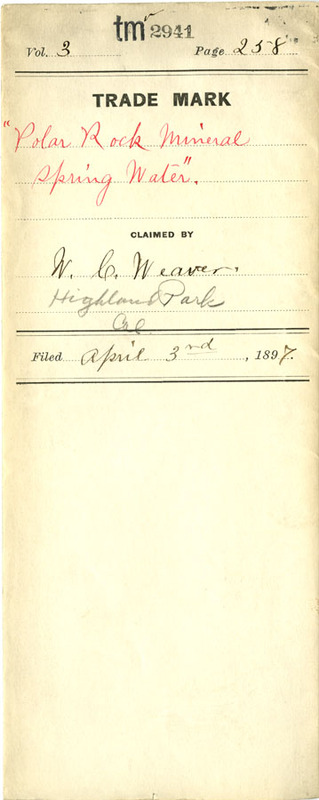 tm 2941
Vol. 3 Page 258
TRADE MARK
"Polar Rock Mineral
Spring Water".
CLAIMED BY
W. C. Weaver.
Highland Park
Cal
Filed April 3rd, 1897.